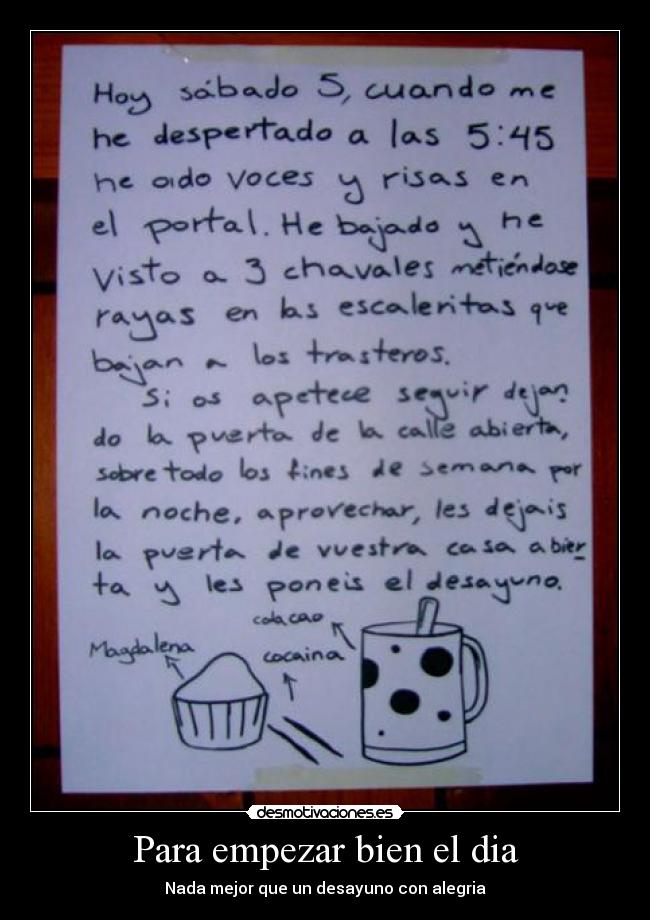 Hoy sábado 5, cuando me
he despertado a las 5:45
he oido voces y risas en
el portal. He bajado y he
visto a 3 chavales metiéndose
rayas en las escaleritas que
bajan a los trasteros.
Si os apetece seguir dejan
do la puerta de la calle abierta,
sobre todo los fines de semana por
la noche, aprovechar, les dejais
la puerta de vuestra casa abier
ta y les poneis el desayuno.
cola cao
Magdalena
cocaina
desmotivaciones.es
Para empezar bien el dia
Nada mejor que un desayuno con alegria